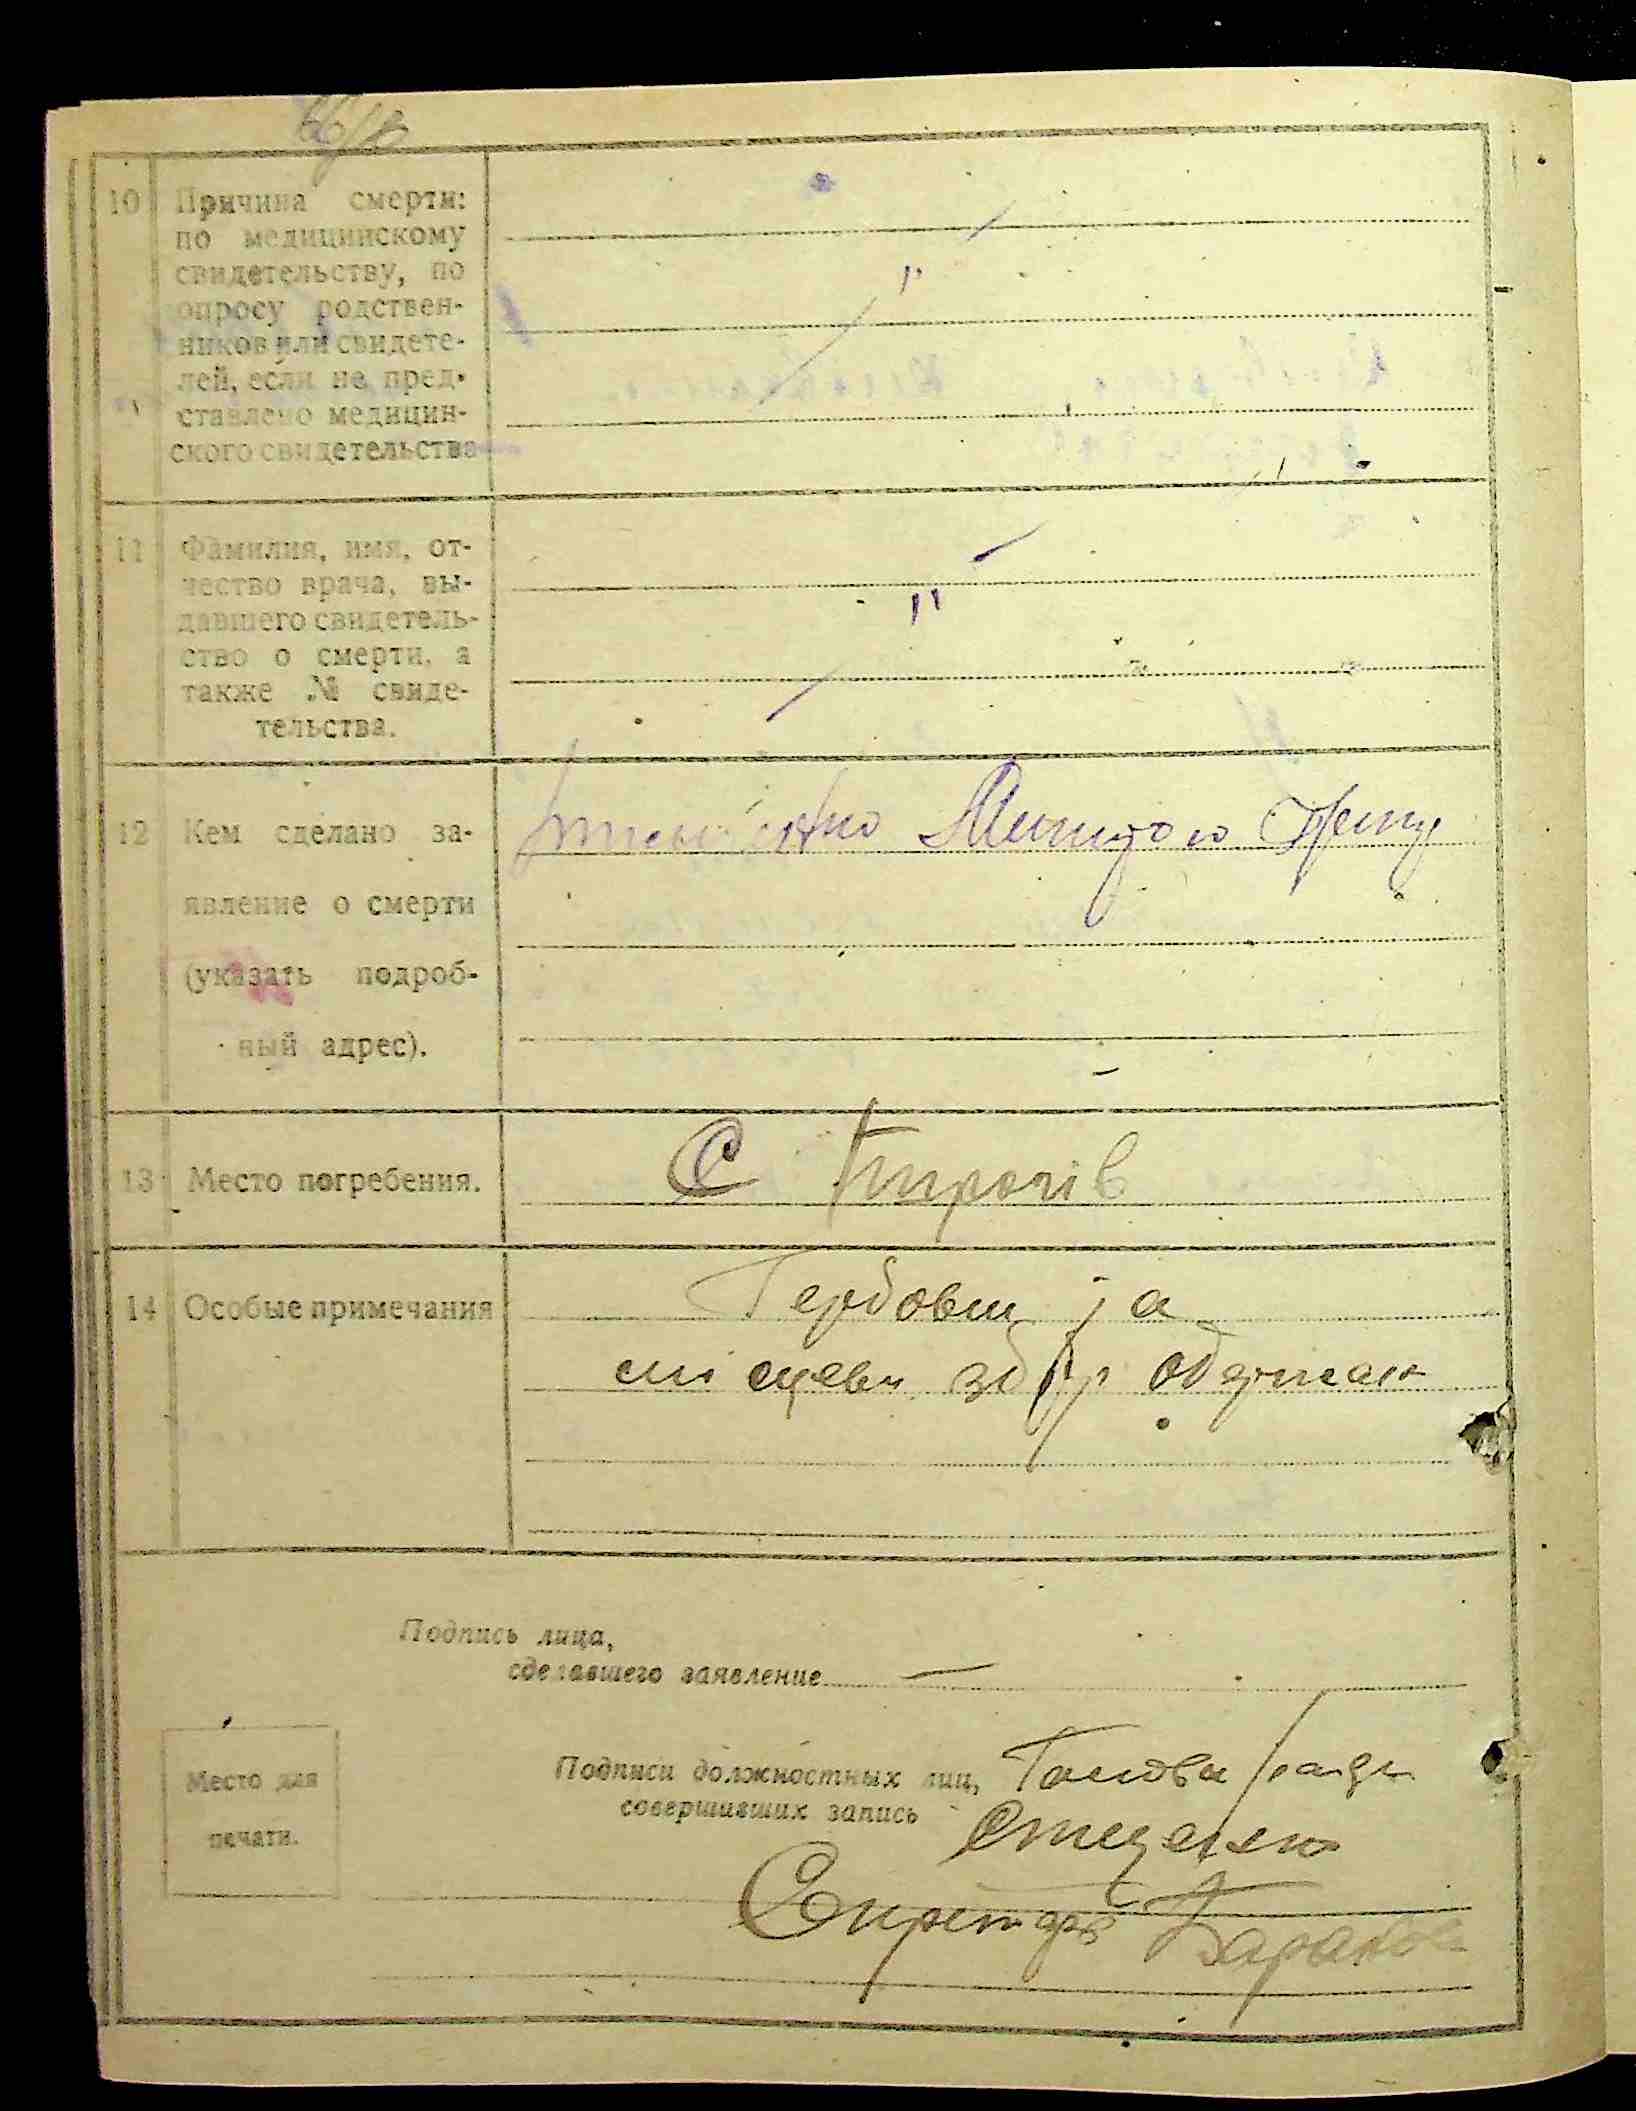 10 Причина смерти:
по медицинскому
свидетельству, по
опросу родствен-
ников или свидете-
лей, если не пред-
ставлено медицин-
ского свидетельства
"
11 Фамилия, имя, от-
чество врача, вы-
давшего свидетель-
ство о смерти, а
также № свиде-
тельства.
"
12 Кем сделано за-
явление о смерти
(указать подроб-
ный адрес).
13 Место погребения. С Пирогів
14 Особые примечания Гербовий за
місцеви збір одержан
Подпись лица,
сделавшего заявление —
Подписи должностных лиц, Голова ради
совершивших запись
Стеценко
Место для
печати.
Секретарь